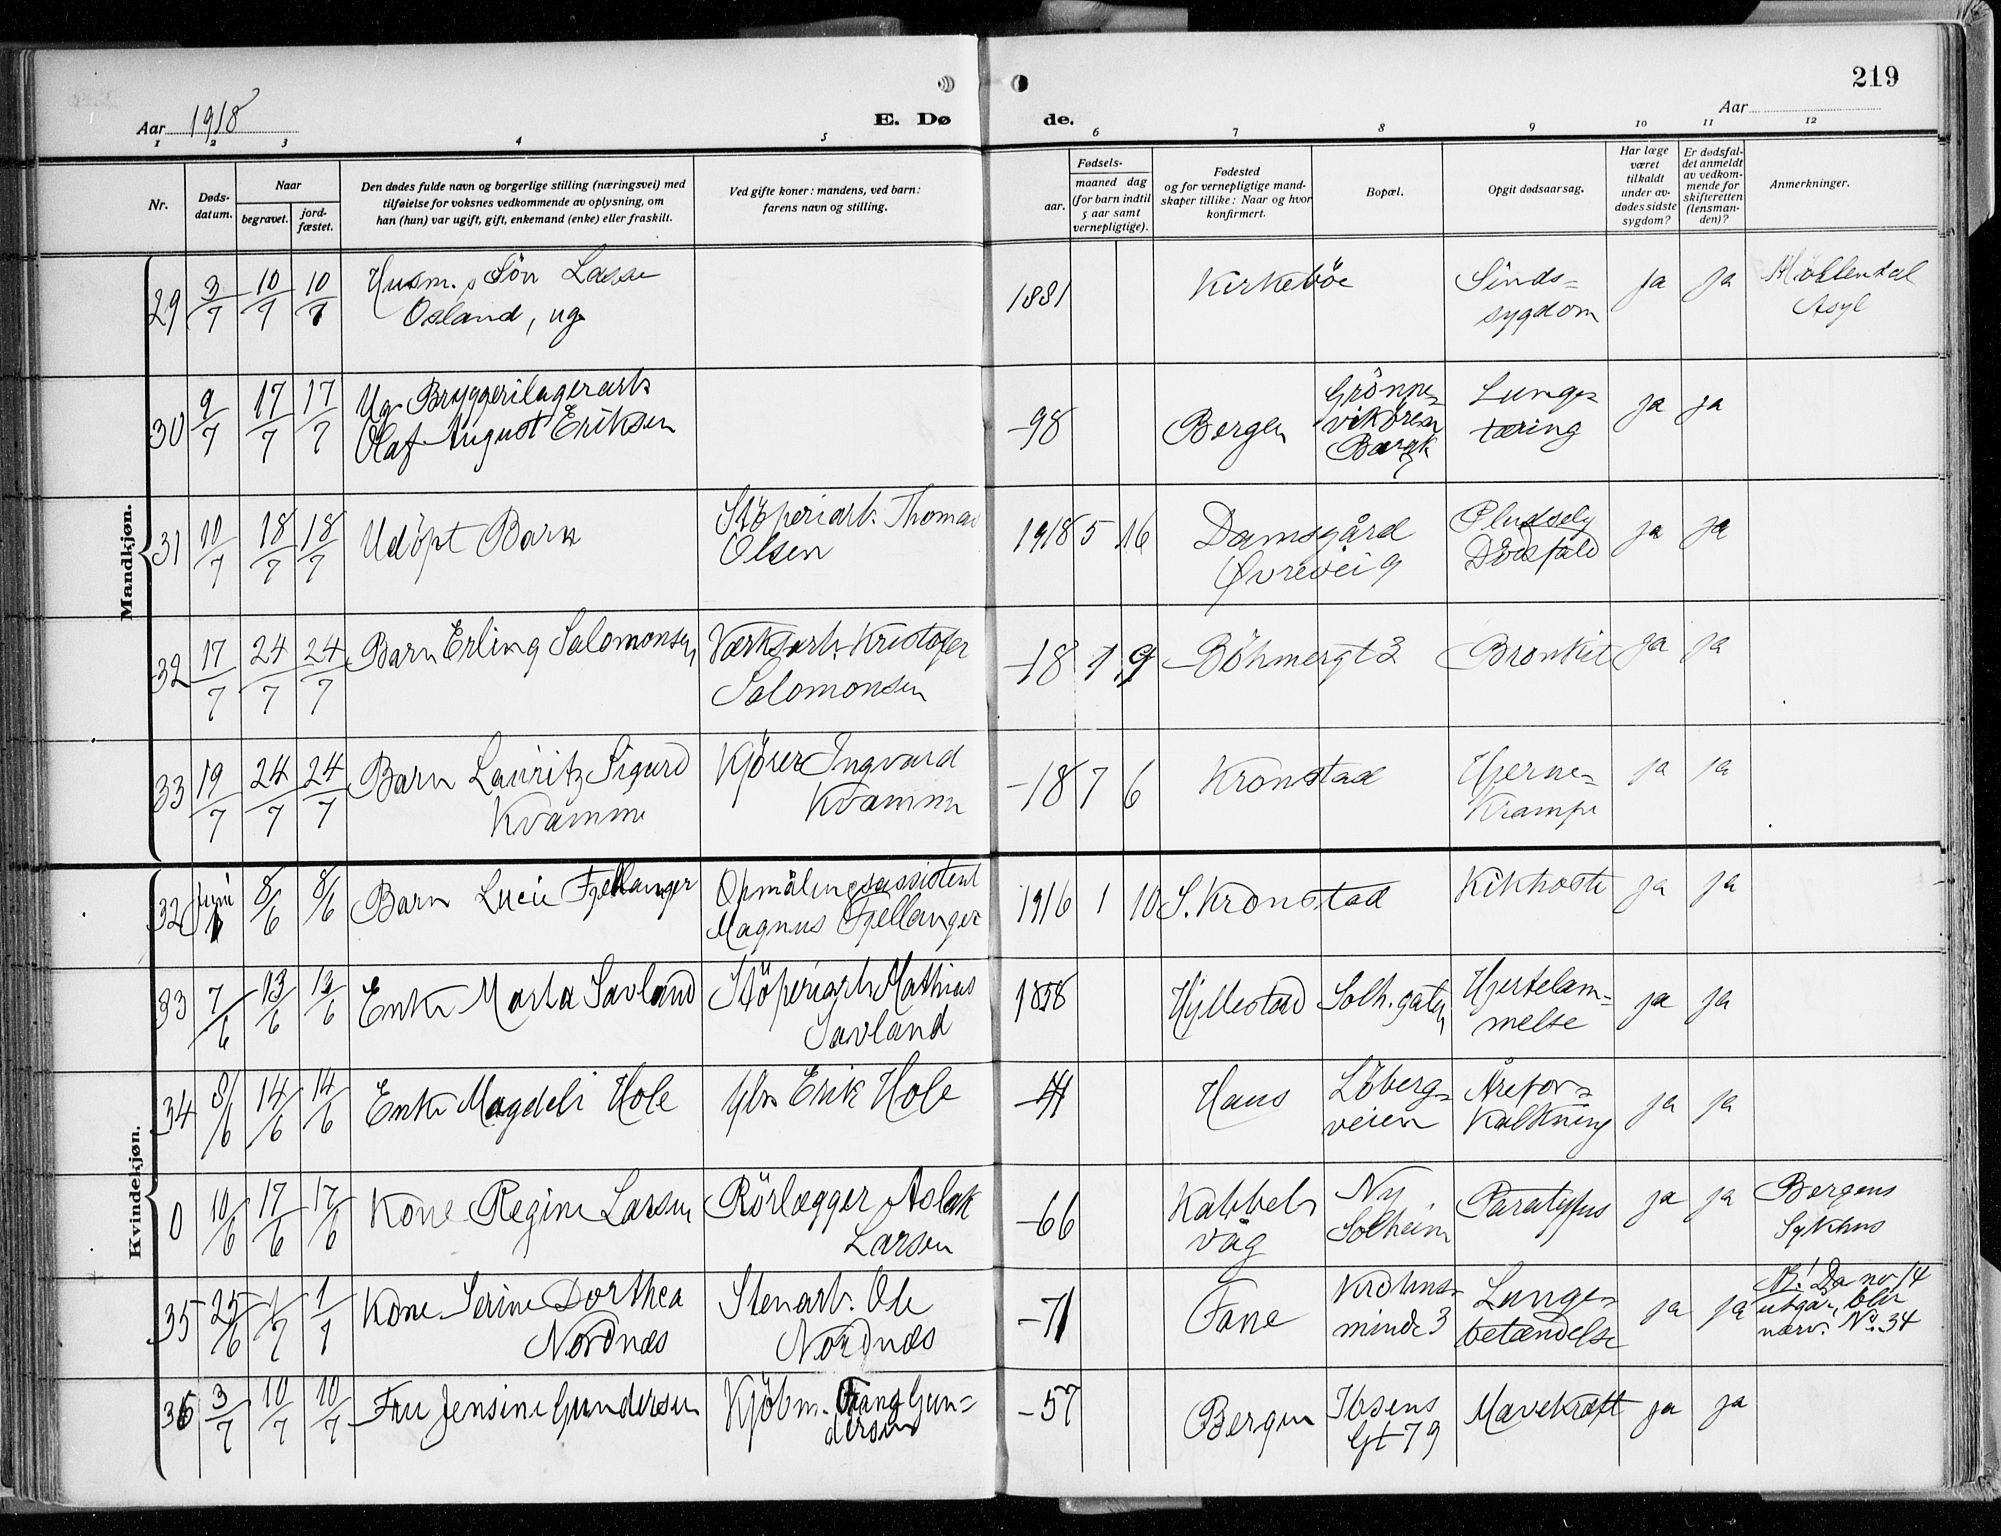 219
Aar 1918
E. Dø de.
Aar
1 2 3 4 5 6 7 8 9 10 11 12
Nr.
Døds-
datum.
Naar
begravet.
jord-
fæstet.
Den dødes fulde navn og borgerlige stilling (næringsvei) med
tilføielse for voksnes vedkommende av oplysning, om
han (hun) var ugift, gift, enkemand (enke) eller fraskilt.
Ved gifte koner: mandens, ved barn:
farens navn og stilling.
Fødsels-
aar.
maaned dag
(for barn indtil
5 aar samt
vernepligtige).
Fødested
og for vernepligtige mand-
skaper tillike: Naar og hvor
konfirmert.
Bopæl.
Opgit dødsaarsag.
Har læge
været
tilkaldt
under av-
dødes sidste
sygdom?
Er dødsfal-
det anmeldt
av vedkom-
mende for
skifteretten
(lensman-
den)?
Anmerkninger.
Mandkjøn.
29 3/7 10/7 10/7 Husm.s Søn Lasse
Osland, ug
1881 Kirkebøe Sinds-
sygdom
ja ja Møllendal
Asyl
30 9/7 17/7 17/7 Ug Bryggerilagerarb
Olaf August Eriksen
-98 Bergen Grønne-
vikøren
Lunge-
tæring
ja ja
31 10/7 18/7 18/7 Udöpt Barn
Støperiarb. Thomas
Olsen
1918 5 16 Damsgård
Øvrevei 9
Pludselig
Dödsfald
ja ja
32 17/7 24/7 24/7 Barn Erling Salomonsen
Værksarb. Kristofer
Salomonsen
-18 1 9 Böhmergt 3 Bronkit ja ja
33 19/7 24/7 24/7 Barn Lauritz Sigurd
Kvamme
Kjører Ingvard
Kvamme
-18 7 6 Kronstad Hjerne-
Krampe
ja ja
Kvindekjøn.
32 juni 8/6 8/6 Barn Lucie Fjellanger
Opmålingsassistent
Magnus Fjellanger
1916 1 10 S. Kronstad Kikhoste ja ja
33 7/6 13/6 13/6 Enke Marta Savland
Støperiarb. Mathias
Savland
1838 Hyllestad Solh. gaten Hjertelam-
melse
ja ja
34 8/6 14/6 14/6 Enke Magdeli Hole
Erik Hole
Haus Löberg-
veien
Årefor-
kalkning
ja ja
0 10/6 17/6 17/6 Kone Regine Larsen
Rörlægger Aslak
Larsen
-66 Kabbel
våg
Ny
Solheim
Paratyfus ja ja Bergens
Sykhus
35 25/6 1/7 1/7 Kone Serine Dorthea
Nordnæs
Stenarb. Ole
Nordnæs
-71 Fane Krohns-
minde 3
Lunge-
betændelse
ja ja Nb! Da no 14
utgår, blir
nærv. No. 34
36 3/7 10/7 10/7 Fru Jensine Gundersen
Kjöbm. Frans Gun-
dersen
-57 Bergen Ibsens
Gt 79
Mavekræft ja ja